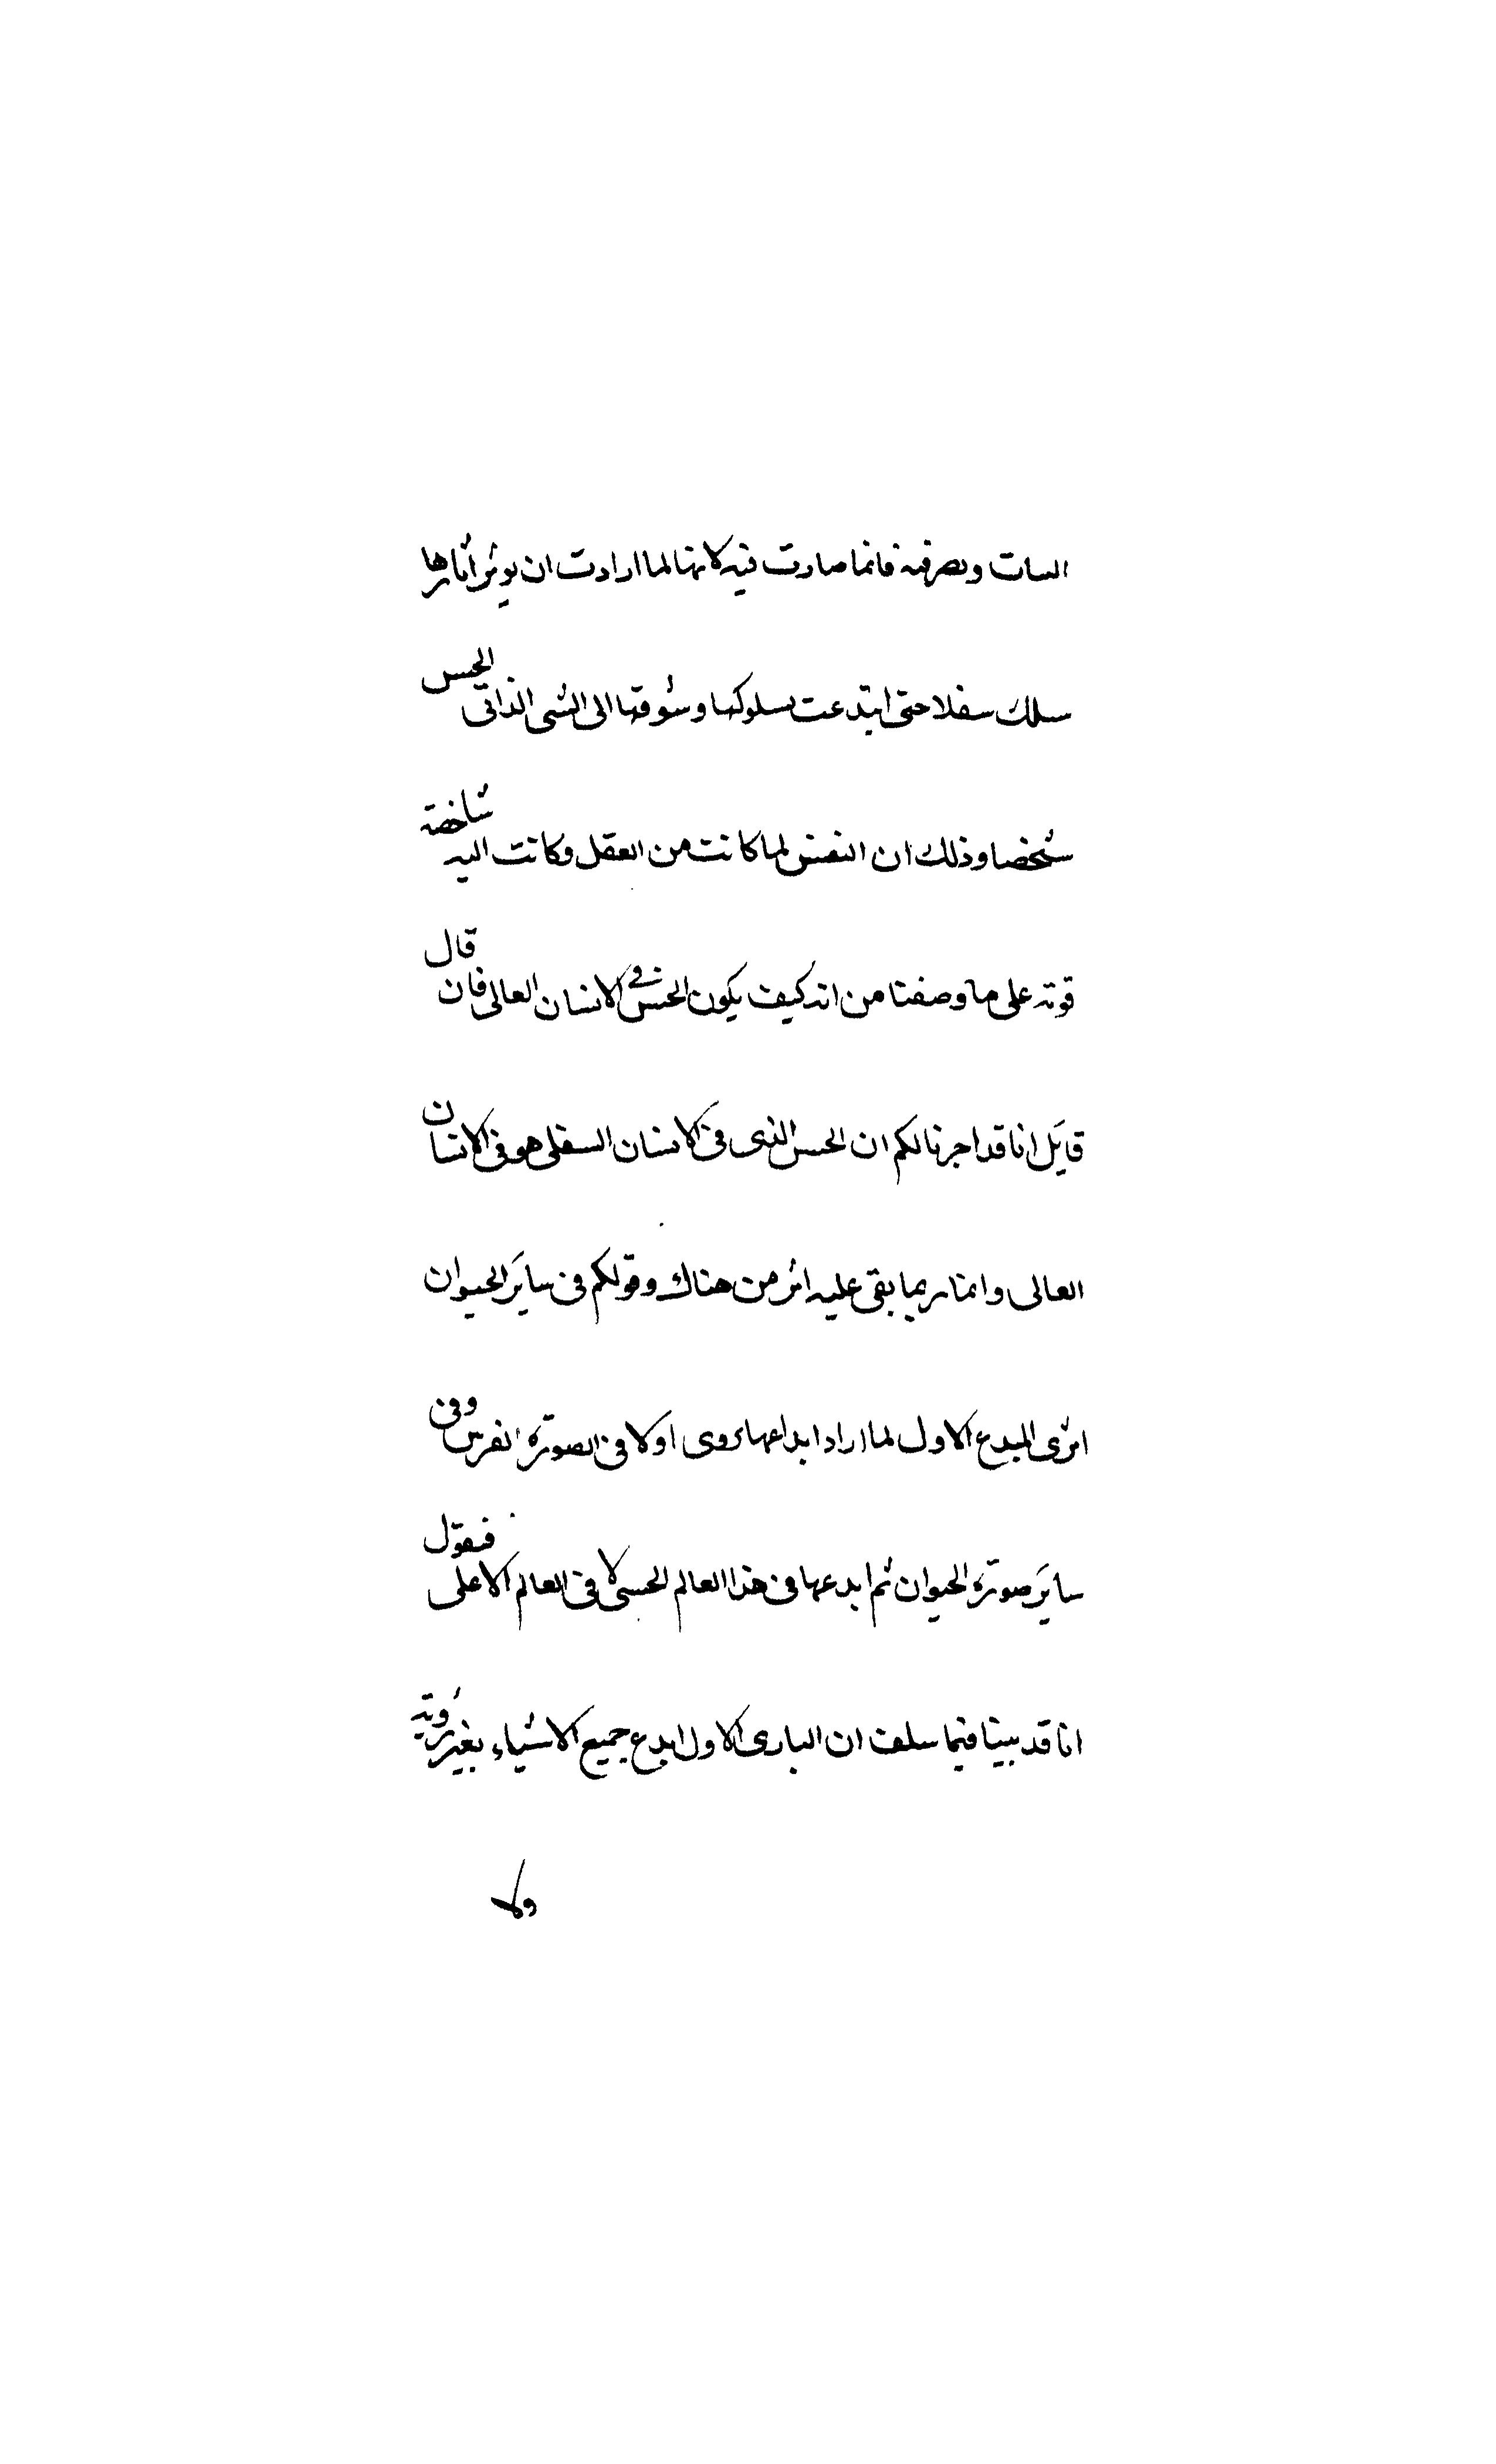 النبات وتصرفه فانما صارت فيه لانها لما ارادت ان يوثر اثارها
سلك سفلا حتى ابتدعت بسلوكها وشوقها الى الشى الذاتى الحس
شخصا وذلك ان النفس لما كانت من العقل وكانت اليه شاخصة
قوته على ما وصفنا من انه كيف يكون الحس فى الانسان العالى فان قال
قايل انا قد اجرنا لكم ان الحس الذى فى الانسان السفلى هو فى الانسان
العالى وانما ربما بقى عليه اثر من هناك وقولكم فى ساير الحيوان
اترى المبدع الاول لما اراد ابداعها روى اولا فى الصورة الفرس وفى
ساير صورة الحيوان ثم ابدعها فى هذا العالم الحسى لا فى العالم الاعلى فنقول
انا قد بينا فيما سلف ان البارى الاول ابدع جميع الاشياء بغير روية
ولا